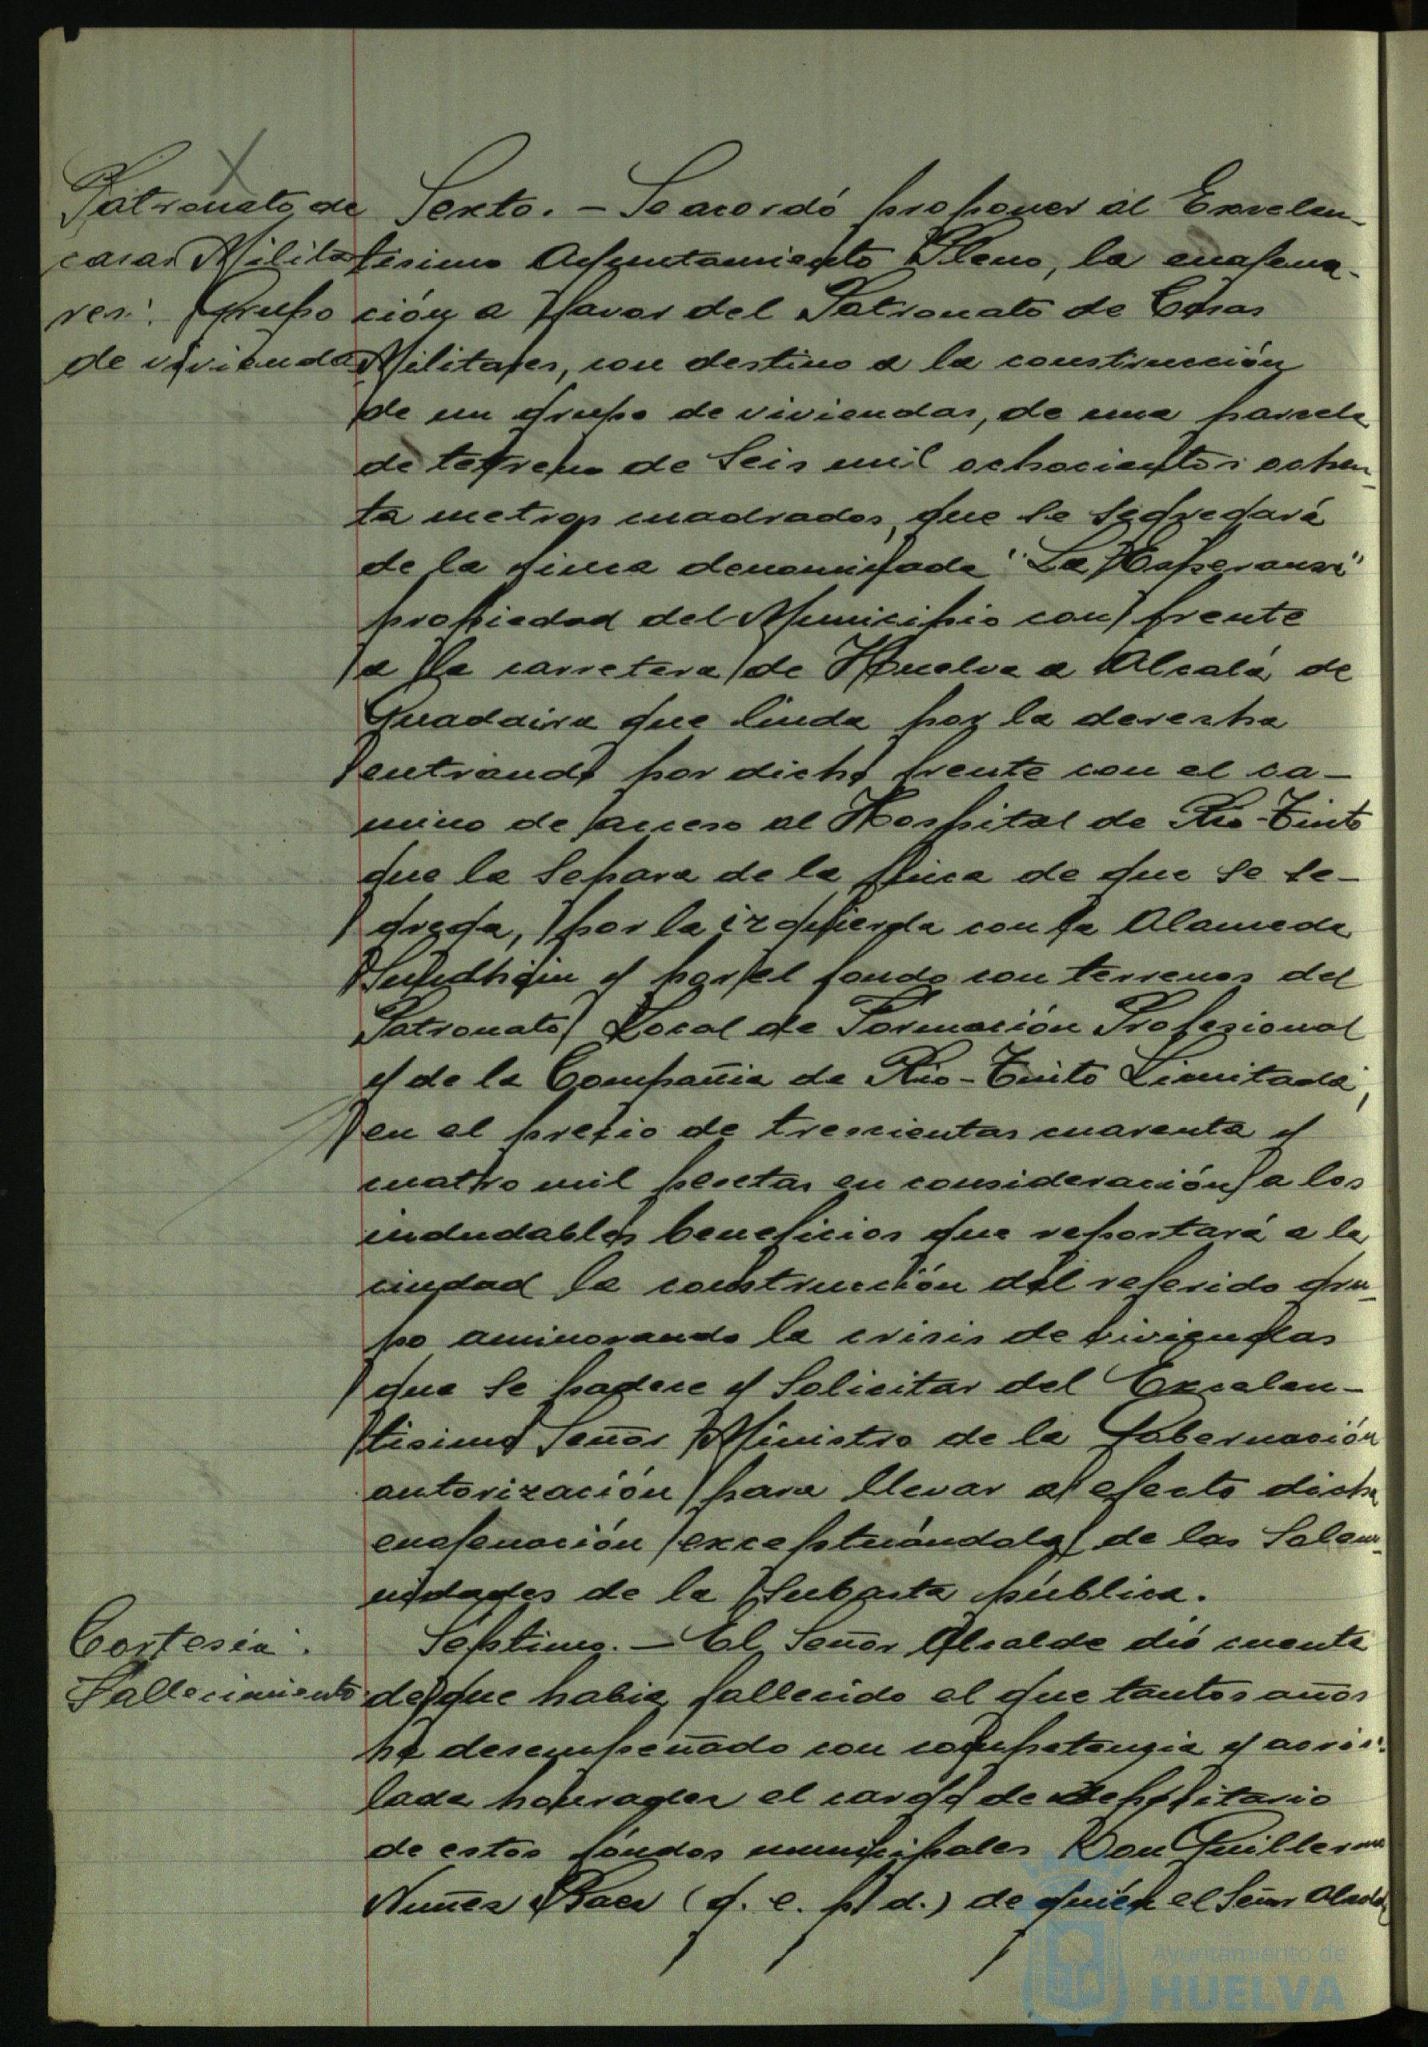 Patronato de
casas Milita
res: Grupo
de vivienda
Sexto. - Se acordó proponer al Excelen-
tísimo Ayuntamiento Pleno, la enagena-
ción a favor del Patronato de Casas
Militares, con destino a la construcción
de un grupo de viviendas, de una parcela
de terreno de seis mil ochocientos ochen-
ta metros cuadrados, que se segregará
de la finca denominada "La Esperanza"
propiedad del Municipio con frente
a la carretera de Huelva a Alcalá de
Guadaira que linda por la derecha
entrando por dicho frente con el ca-
mino de acceso al Hospital de Rio-Tinto
que la separa de la finca de que se se-
grega, por la izquierda con la Alameda
Sundheim y por el fondo con terrenos del
Patronato Local de Formación Profesional
y de la Compañia de Rio-Tinto Limitada,
en el precio de trescientas cuarenta y
cuatro mil pesetas en consideración a los
indudables beneficios que reportará a la
ciudad la construcción del referido gru-
po aminorando la crisis de viviendas
que se padece y solicitar del Excelen-
tisimo Señor Ministro de la Gobernación
autorización para llevar a efecto dicha
enagenación exceptuándola de las solem-
nidades de la subasta pública.
Cortesía.
Fallecimiento
Séptimo. - El Señor Alcalde dió cuenta
de que habia fallecido el que tantos años
ha desempeñado con competencia y acriso-
lada honradez el cargo de Depositario
de estos fondos municipales Don Guillermo
Nuñez Baez (q. e. p. d.) de quién el Señor Alcalde
Ayuntamiento de
HUELVA